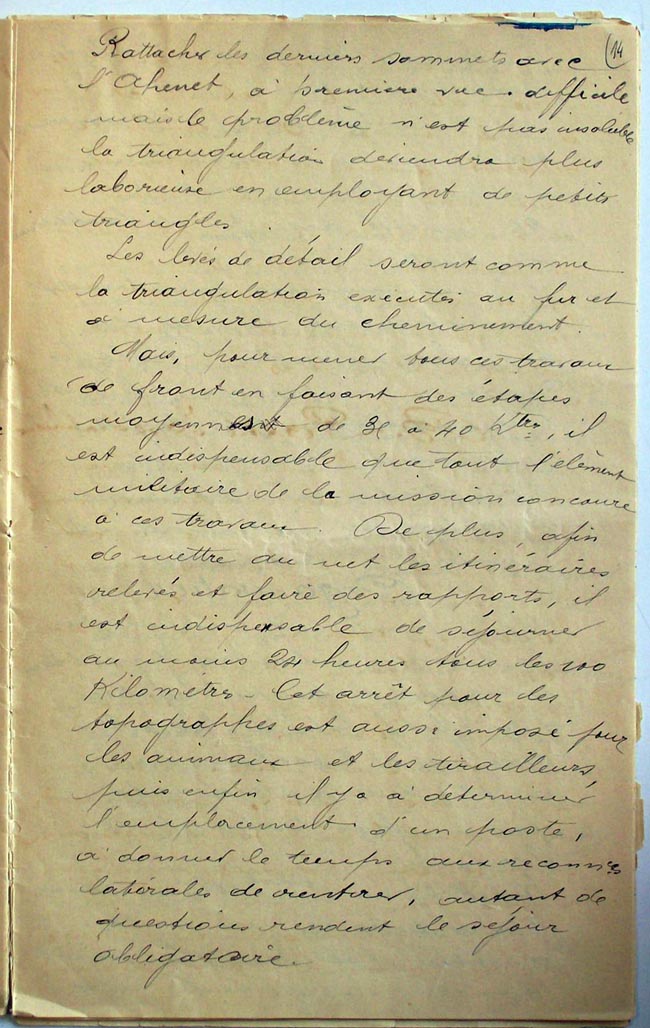 14
Rattacher les derniers sommets avec
l'Ahenet, à première vue difficile
mais le problème n'est pas insoluble
la triangulation deviendra plus
laborieuse en employant de petits
triangles.
Les levés de détail seront comme
la triangulation exécutés au fur et
à mesure du cheminement.
Mais, pour mener tous ces travaux
de front en faisant des étapes
de à 40 Ktrs, il
est indispensable que tout l'élément
militaire de la mission concoure
à ces travaux. De plus, afin
de mettre au net les itinéraires
relevés et faire des rapports, il
est indispensable de séjourner
au moins 24 heures tous les 100
Kilomètres - Cet arrêt pour les
topographes est aussi imposé pour
les animaux et les tirailleurs,
puis enfin il y a à déterminer
l'emplacement d'un poste,
à donner le temps aux reconnces
latérales de rentrer, autant de
questions rendent le séjour
obligatoire.